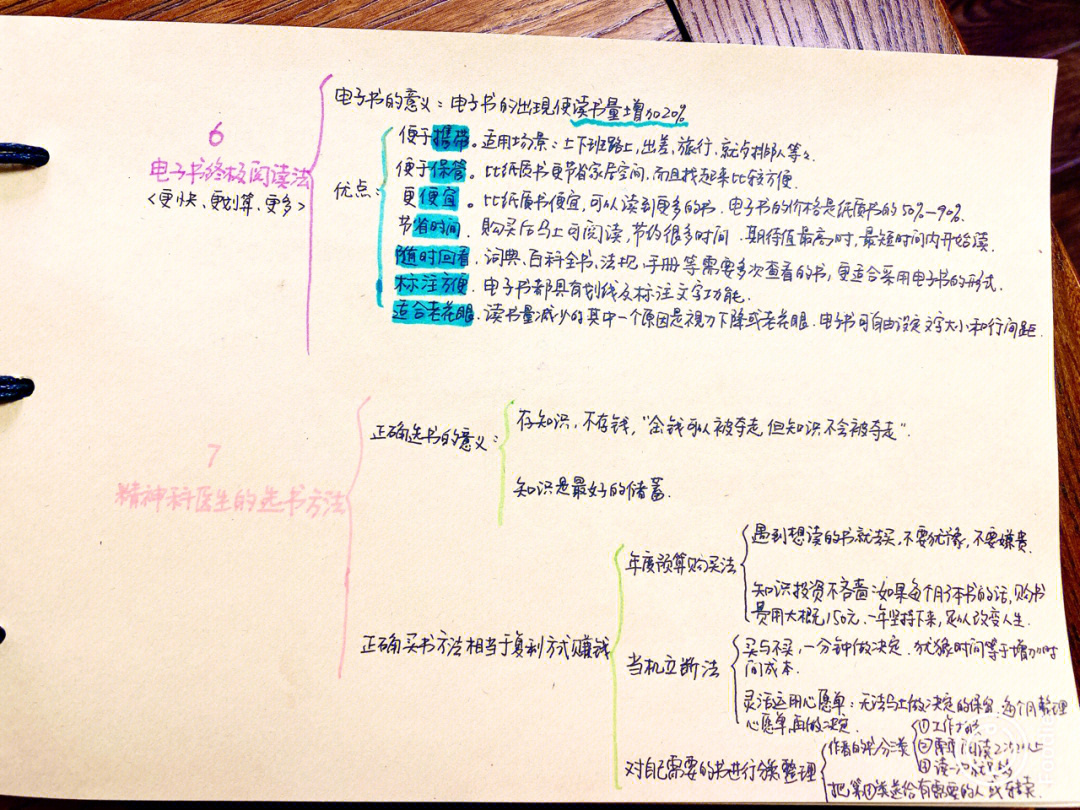 6
电子书终极阅读法
<更快、更划算、更多>
电子书的意义：电子书的出现使读书量增加20%
优点：
便于携带。适用场景：上下班路上,出差,旅行、就餐排队等等.
便于保管。比纸质书更节省家居空间,而且找起来比较方便.
更便宜。比纸质书便宜,可以读到更多的书、电子书的价格是纸质书的50%-90%.
节省时间.购买后马上可阅读,节约很多时间.期待值最高时,最短时间内开始读.
随时回看.词典、百科全书、法规、手册等需要多次查看的书,更适合采用电子书的形式.
标注方便.电子书都具有划线及标注文字功能.
适合老花眼.读书量减少的其中一个原因是视力下降或老花眼.电子书可自由设定文字大小和行间距.
7
精神科医生的选书方法
正确选书的意义：
存知识,不存钱,"金钱可以被夺走,但知识不会被夺走".
知识是最好的储蓄.
正确买书方法相当于复利方式赚钱
年度预算购买法
遇到想读的书就去买,不要犹豫,不要嫌贵.
知识投资不吝啬:如果每个月3本书的话,购书
费用大概150元.一年坚持下来,足以改变人生.
当机立断法
买与不买,一分钟做决定.犹豫时间等于增加时
间成本.
灵活运用心愿单：无法马上做决定的保留.每个月整理
心愿单,再做决定.
对自己需要的书进行分类整理
作者的书分类
①工作
②需要阅读2次以上
③读一次
把第③类送给有需要的人或转卖.